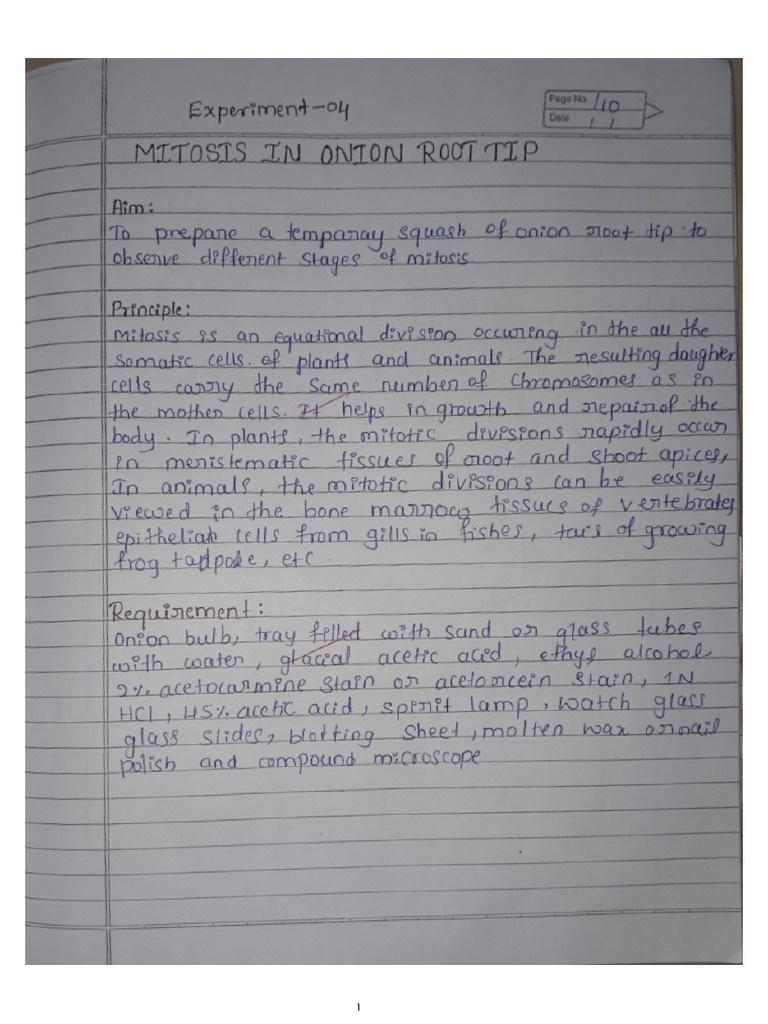 Experiment-04
Page No. 10
Date / /
MITOSIS IN ONION ROOT TIP
Aim:
To prepare a temparay squash of onion root tip to
observe different stages of mitosis.
Principle:
Mitosis is an equational division occuring in the all the
somatic cells. of plants and animals. The resulting daughter
cells carry the same number of chromosomes as in
the mother cells. It helps in growth and repair of the
body. In plants, the mitotic divisions rapidly occur
in meristematic tissues of root and shoot apices,
In animals, the mitotic divisions can be easily
viewed in the bone marrow tissues of vertebrates
epithelial cells from gills in fishes, tais of growing
frog tadpole, etc.
Requirement:
Onion bulb, tray filled with sand or glass tubes
with water, glacial acetic acid, ethyl alcohol
2% acetocarmine stain or acetorcein stain, 1N
HCl, 45% acetic acid, spirit lamp, watch glass
glass slides, blotting sheet, molten wax or nail
polish and compound microscope
1